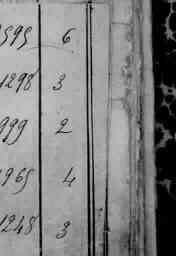 9595 6
1298 3
999 2
1965 4
1248 3